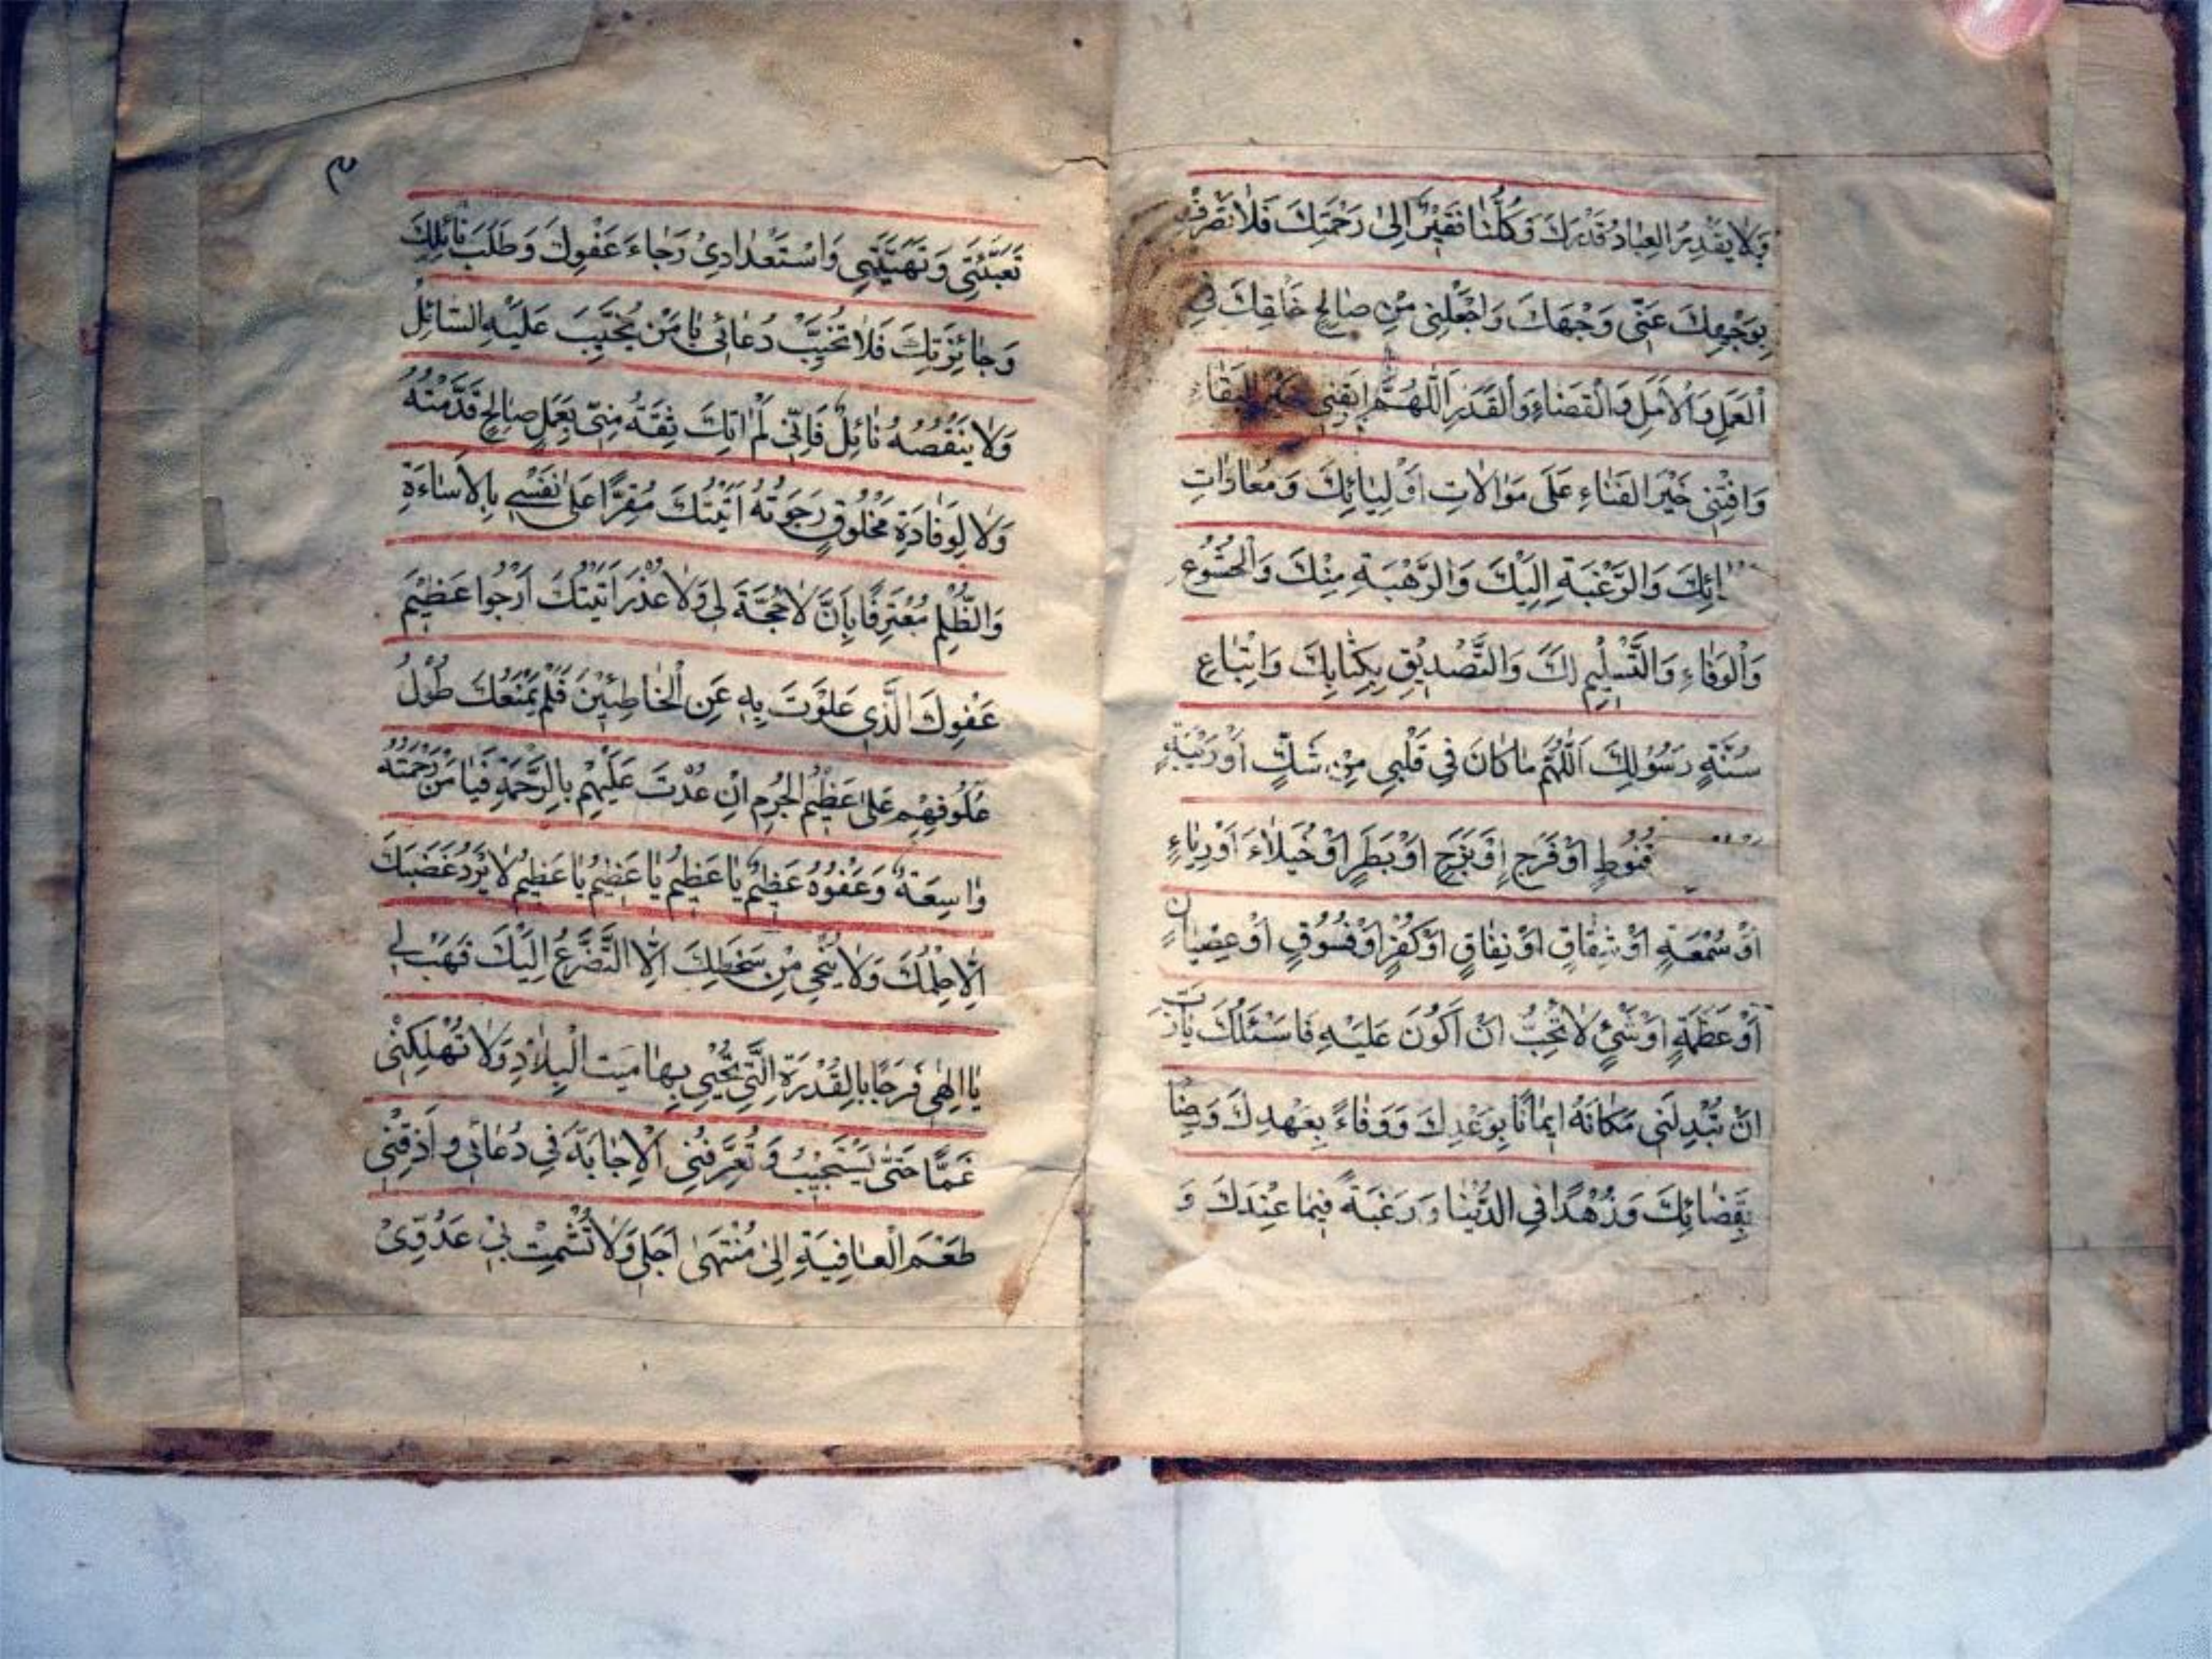 وَلَا يَقْدِرُ الْعِبَادُ قَدْرَكَ وَكُلُّنَا فَقِيرٌ إِلَىٰ رَحْمَتِكَ فَلَا تَصْرِفْ
بِوَجْهِكَ عَنِّي وَجْهَكَ وَاجْعَلْنِي مِنْ صَالِحِ خَلْقِكَ فِي
الْعَمَلِ وَالْأَمَلِ وَالْقَضَاءِ وَالْقَدَرِ اَللّٰهُمَّ ابْقِنِي خَيْرَ الْبَقَاءِ
وَافْنِنِي خَيْرَ الْفَنَاءِ عَلَى مَوَالَاتِ أَوْلِيَائِكَ وَمُعَادَاتِ
ائِكَ وَالرَّغْبَةِ إِلَيْكَ وَالرَّهْبَةِ مِنْكَ وَالْخُشُوعِ
وَالْوَفَاءِ وَالتَّسْلِيمِ لَكَ وَالتَّصْدِيقِ بِكِتَابِكَ وَاتِّبَاعِ
سُنَّةِ رَسُولِكَ اَللّٰهُمَّ مَا كَانَ فِي قَلْبِي مِنْ شَكٍّ أَوْ رَيْبَةٍ
قُنُوطٍ أَوْ فَرَحٍ أَوْ بَزَحٍ أَوْ بَطَرٍ أَوْ خُيَلَاءَ أَوْ رِيَاءٍ
أَوْ سُمْعَةٍ أَوْ شِقَاقٍ أَوْ نِفَاقٍ أَوْ كُفْرٍ أَوْ فُسُوقٍ أَوْ عِصْيَانٍ
أَوْ عَظَمَةٍ أَوْ شَيْءٍ لَا تُحِبُّ أَنْ أَكُونَ عَلَيْهِ فَاسْئَلُكَ يَارَبِّ
أَنْ تُبْدِلَنِي مَكَانَهُ إِيمَانًا بِوَعْدِكَ وَوَفَاءً بِعَهْدِكَ وَرِضًا
بِقَضَائِكَ وَزُهْدًا فِي الدُّنْيَا وَرَغْبَةً فِيمَا عِنْدَكَ وَ
٣
تَعْبِئَتِي وَتَهْيِئَتِي وَاسْتِعْدَادِي رَجَاءَ عَفْوِكَ وَطَلَبَ نَائِلِكَ
وَجَائِزَتِكَ فَلَا تُخَيِّبْ دُعَائِي يَا مَنْ يُخَيِّبُ عَلَيْهِ السَّائِلُ
وَلَا يَنْقُصُهُ نَائِلٌ فَإِنِّي لَمْ اٰتِكَ ثِقَةً مِنِّي بِعَمَلٍ صَالِحٍ قَدَّمْتُهُ
وَلَا لِوَفَادَةِ مَخْلُوقٍ رَجَوْتُهُ أَتَيْتُكَ مُقِرًّا عَلَىٰ نَفْسِي بِالْاِسَاءَةِ
وَالظُّلْمِ مُعْتَرِفًا بِأَنَّ لَا حُجَّةَ لِي وَلَا عُذْرَ أَتَيْتُكَ أَرْجُوا عَظِيمَ
عَفْوِكَ الَّذِي عَلَوْتَ بِهِ عَنِ الْخَاطِئِينَ فَلَمْ يَمْنَعْكَ طُوْلُ
عُكُوفِهِمْ عَلَىٰ عَظِيمِ الْجُرْمِ اَنْ عُدْتَ عَلَيْهِمْ بِالرَّحْمَةِ فَيَا مَنْ رَحْمَتُهُ
وَاسِعَةٌ وَعَفْوُهُ عَظِيمٌ يَا عَظِيمُ يَا عَظِيمُ يَا عَظِيمُ لَا يَرُدُّ غَضَبَكَ
اِلَّا حِلْمُكَ وَلَا يُنْجِي مِنْ سَخَطِكَ اِلَّا التَّضَرُّعُ اِلَيْكَ فَهَبْ لِي
يَا اِلٰهِي فَرَجًا بِالْقُدْرَةِ الَّتِي تُحْيِي بِهَا مَيْتَ الْبِلَادِ وَلَا تُهْلِكْنِي
غَمًّا حَتّٰى يَسْتَجِيبُ وَتُعَرِّفُنِي الْاِجَابَةَ فِي دُعَائِي وَاَذِقْنِي
طَعْمَ الْعَافِيَةِ اِلٰى مُنْتَهٰى اَجَلِي وَلَا تُشْمِتْ بِي عَدُوِّي